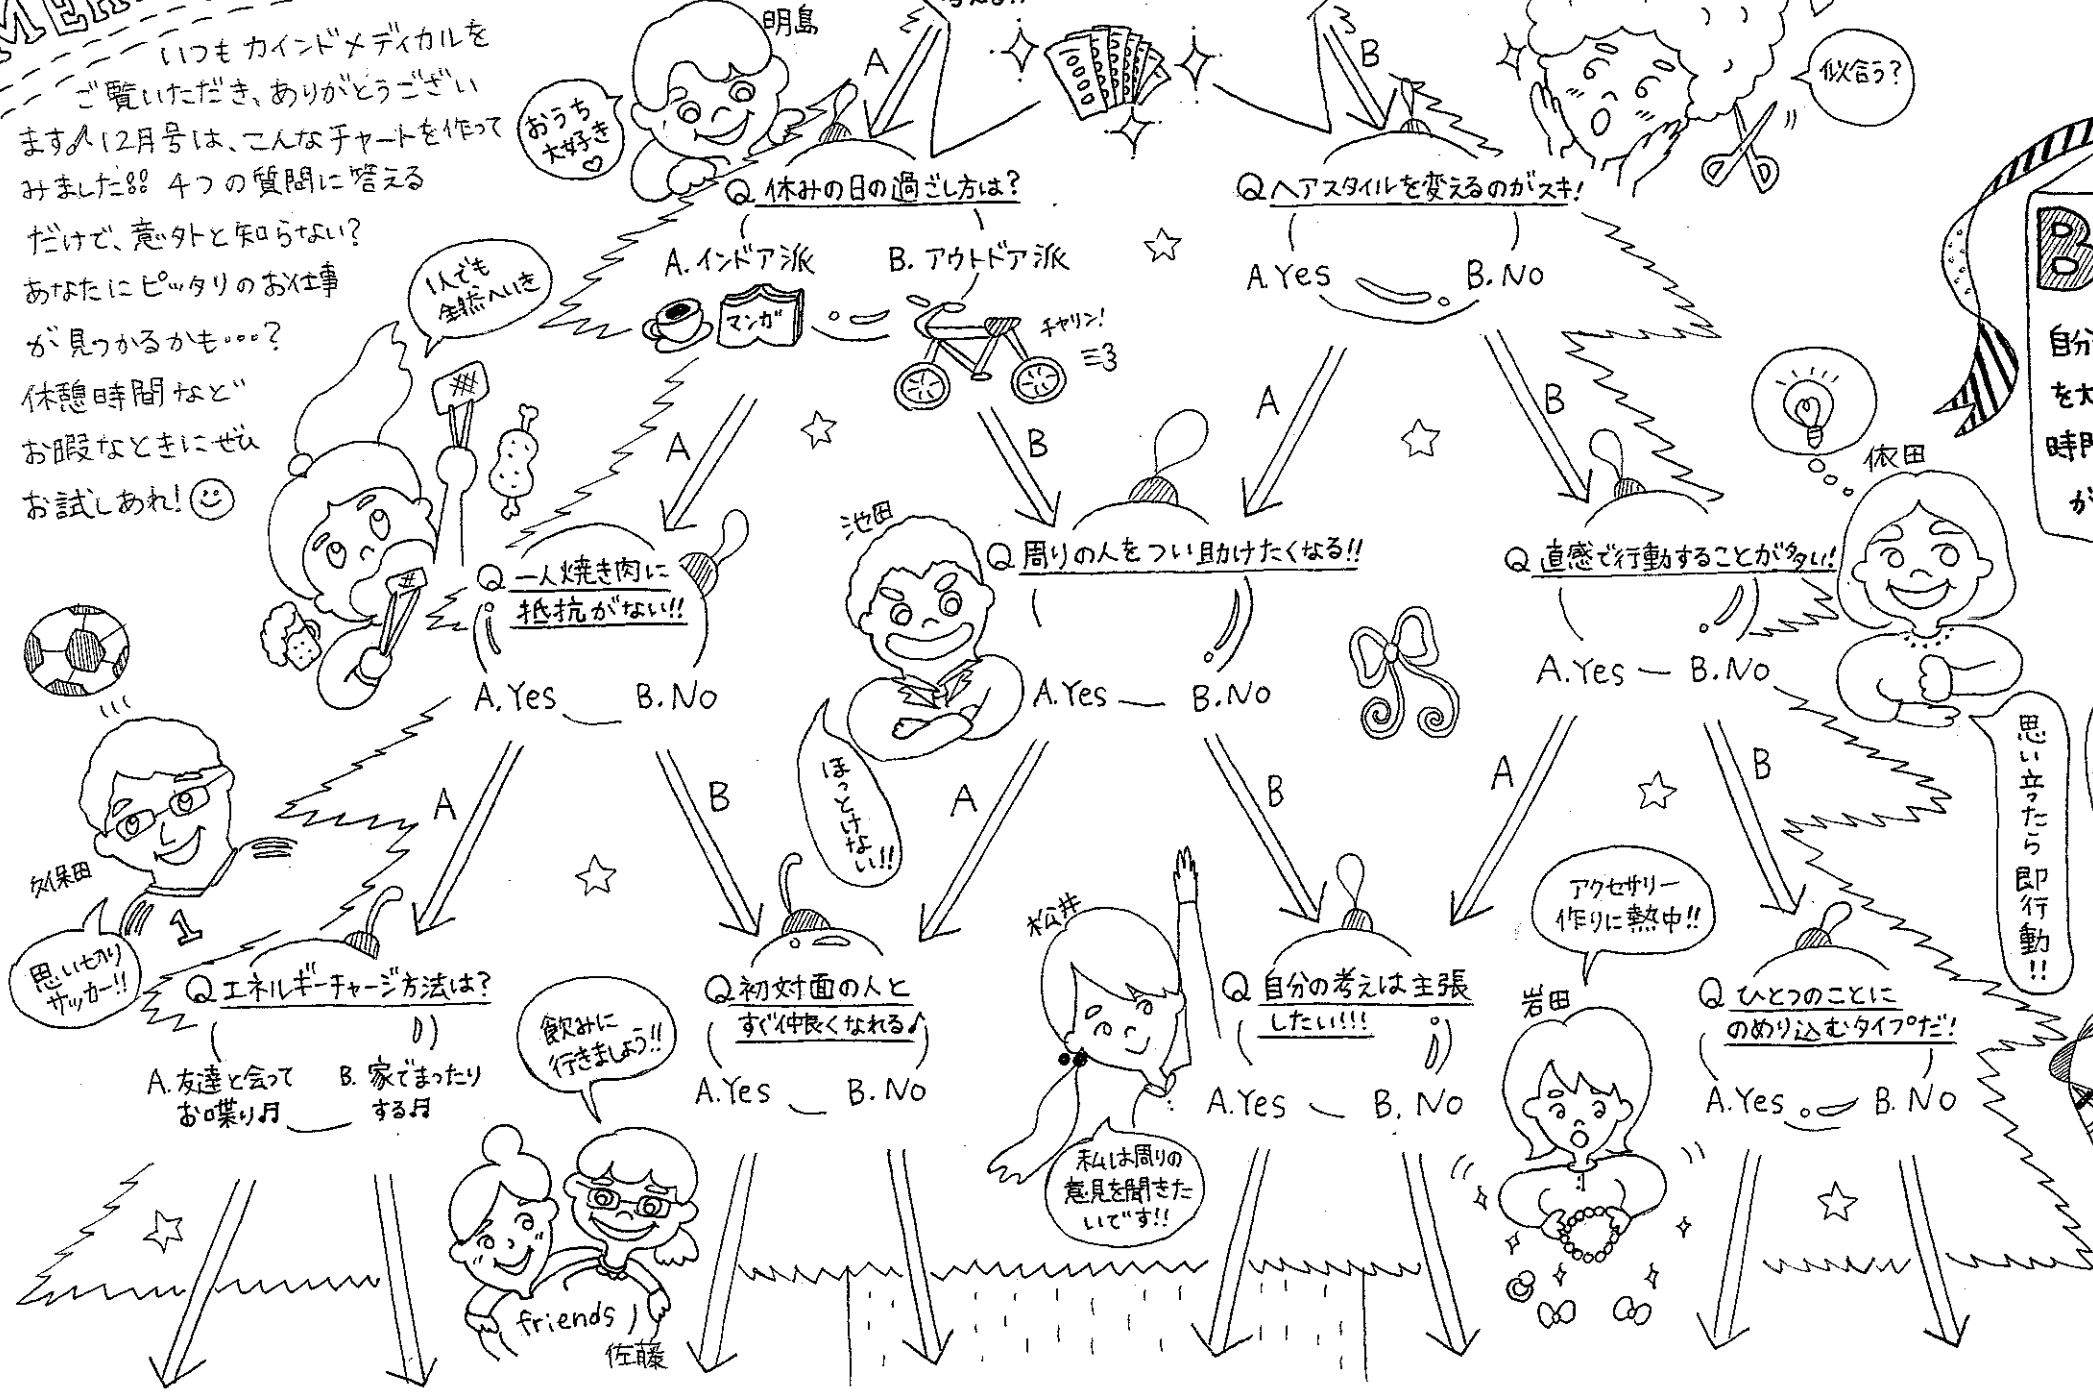 いつもカインドメディカルを
ご覧いただき、ありがとうござい
ます♪12月号は、こんなチャートを作って
みました!! 4つの質問に答える
だけで、意外と知らない?
あなたにピッタリのお仕事
が見つかるかも…?
休憩時間など
お暇なときにぜひ
お試しあれ!
明島
おうち
大好き
A
B
似合う?
Q 休みの日の過ごし方は?
A. インドア派 B. アウトドア派
マンガ
チャリン!
Q ヘアスタイルを変えるのがスキ!
A. Yes B. No
1人でも
全然へいき
A
B
A
B
Q 一人焼き肉に
抵抗がない!!
A. Yes B. No
池田
Q 周りの人をつい助けたくなる!!
A. Yes B. No
ほっとけない!!
依田
Q 直感で行動することが多い!
A. Yes B. No
思い立ったら即行動!!
B
自分
を大
時間
が
A
B
A
B
A
B
久保田
1
思い切り
サッカー!!
Q エネルギーチャージ方法は?
A. 友達と会って
お喋り♬
B. 家でまったり
する♬
飲みに
行きましょう!!
friends
佐藤
Q 初対面の人と
すぐ仲良くなれる♪
A. Yes B. No
松井
Q 自分の考えは主張
したい!!!
A. Yes B. No
私は周りの
意見を聞きた
いです!!
アクセサリー
作りに熱中!!
岩田
Q ひとつのことに
のめり込むタイプだ!
A. Yes B. No